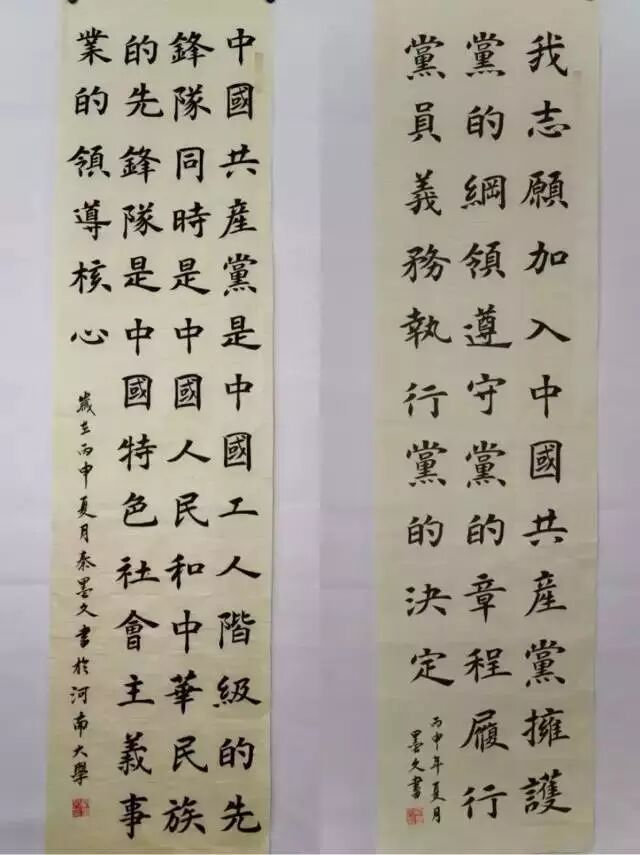 我志願加入中國共産黨擁護
黨的綱領遵守黨的章程履行
黨員義務執行黨的決定
丙申年夏月
墨久書
中國共産黨是中國工人階級的先
鋒隊同時是中國人民和中華民族
的先鋒隊是中國特色社會主義事
業的領導核心
歲在丙申夏月秦墨久書於河南大學